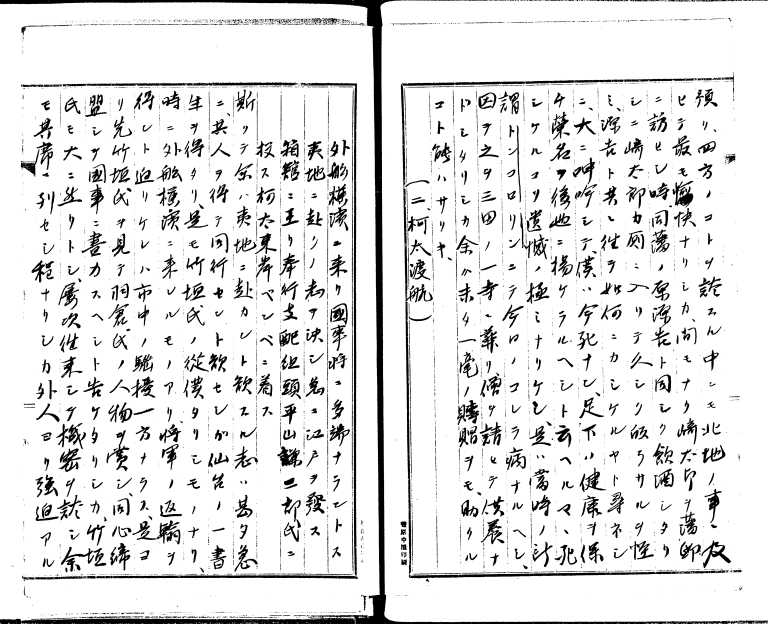 預リ、四方ノコトヲ談スル中ニモ北地ノ事ニ及
ヒテ最モ愉快ナリシカ、間モナク崎太郎ヲ藩邸
ニ訪ヒシ時同藩ノ原源吉ト同シク飲酒シタリ
シニ崎太郎カ厠ニ入リテ久シク皈ラサルヲ怪
ミ、源吉ト共ニ往テ如何ニカシケルヤト尋ネシ
ニ、大ニ呻吟シテ、僕ハ今死ナン、足下ハ健康ヲ保
チ榮名ヲ後世ニ揚ケラルヘシト云ヘルマヽ死
シケルコソ遺憾ノ極ミナリケレ、是ハ當時ノ所
謂トンコロリンニテ今日ノコレラ病ナルヘシ、
因テ之ヲ三田ノ一寺ニ葬リ僧ヲ請ヒテ供養ナ
トシタリシカ余ハ未タ一毫ノ賻賵ヲモ助クル
コト能ハサリキ、
（二、柯太渡航）
外舩横濱ニ来リ國事将ニ多端ナラントス
夷地ニ赴クノ志ヲ決シ急ニ江戸ヲ發ス
箱舘ニ至リ奉行支配組頭平山謙二郎氏ニ
投ス柯太東岸ベンベニ着ス
斯リテ余ハ夷地ニ赴カント欲スル志ハ甚タ急
ニ、其人ヲ得テ同行セント欲セシガ仙台ノ一書
生ヲ得タリ、是モ竹垣氏ノ從僕タリシモノナリ、
時ニ外舩横濱ニ来レルモノアリ将軍ノ返翰ヲ
得ント迫リケレハ市中ノ騒擾一方ナラス、是ヨ
リ先竹垣氏ヲ見テ羽倉氏ノ人物ヲ賞シ、同心締
盟シテ國事ニ盡カスヘシト告ケタリシカ、竹垣
氏モ大ニ然リトシ屢次往来シテ機密ヲ談シ余
モ其席ニ列セシ程ナリシカ外人ヨリ強迫アル